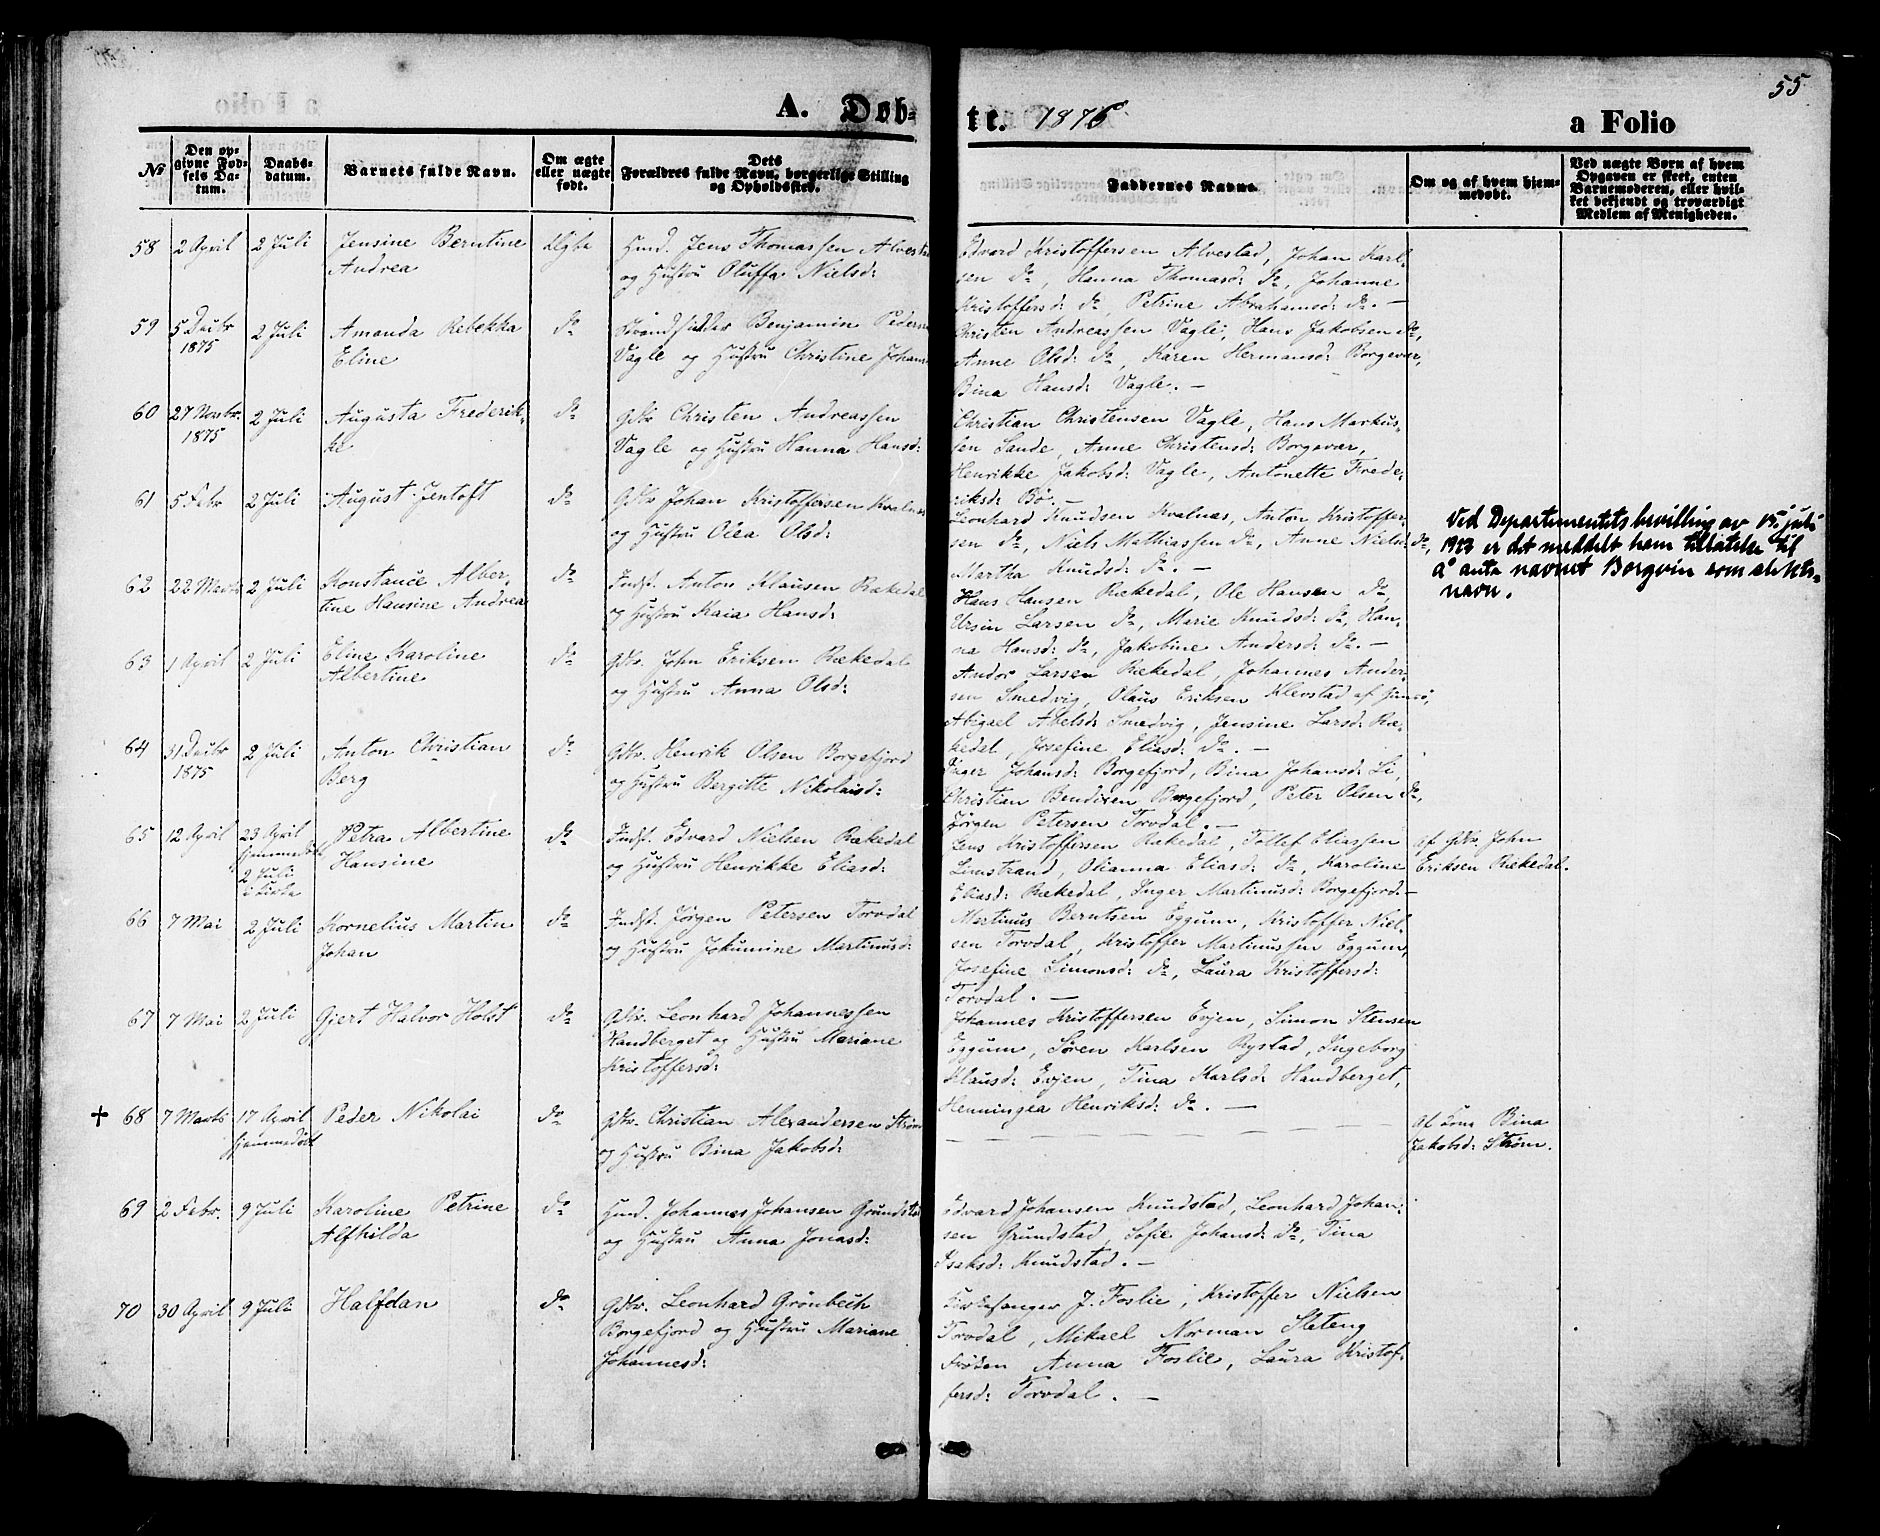 55
A. Døb-
te. 1876
a Folio
№
Den op-
givne Fød-
sels Da-
tum.
Daabs-
datum.
Barnets fulde Navn.
Om ægte
eller uægte
født.
Dets
Forældres fulde Navn, borgerlige Stilling
og Opholdssted.
Faddernes Navne
Om og af hvem hjem-
medøbt.
Ved uægte Børn af hvem
Opgaven er skeet, enten
Barnemoderen, eller hvil-
ket bekjendt og troværdigt
Medlem af Menigheden.
58 2 April 2 Juli Jensine Berntine Ægte Huusd. Jens Thomassen Alvestad
Andrea og Hustru Oluffa Nielsd:
Edvard Kristoffersen Alvestad, Johan Karl-
sen do, Hanna Thomasd: do, Johanne
Kristoffersd: do, Petrine Abrahamsd: do. —
59 5 Decbr 2 Juli Amanda Rebekka do Strandsidder Benjamin Peders
1875 Eline Vagle og Hustru Christine Johans
Christen Andreassen Vagle, Hans Jakobsen do,
Anne Olsd: do, Karen Hermansd: Borgevær,
Bina Hansd: Vagle. —
60 27 Novbr. 2 Juli Augusta Frederik- do Gdbr. Christen Andreassen
1875 ke Vagle og Hustru Hanna Hansd:
Christian Christensen Vagle, Hans Markus-
sen Sande, Anne Christensd: Borgevær,
Henrikke Jakobsd: Vagle, Antonette Frede-
riksd: Bø. —
61 5 Febr 2 Juli August Jentoft do Gdbr. Johan Kristoffersen Kvalnæs
og Hustru Olea Olsd:
Leonhard Knudsen Kvalnæs, Anton Kristoffer-
sen do, Niels Mathiassen do, Anne Nielsd: do,
Martha Knudsd: do. —
Ved Departementets bevilling av 15 juli
1923 er det meddelt ham tillatelse til
å anta navnet Borgvin som slekts-
navn.
62 22 Marts 2 Juli Konstance Alber- do Indst. Anton Klausen Rækedal
tine Hansine Andrea og Hustru Kaia Hansd:
Hans Hansen Rækedal, Ole Hansen do,
Ursin Larsen do, Marie Knudsd: do, Han-
na Hansd: do, Jakobine Andersd: do. —
63 1 April 2 Juli Eline Karoline do Gdbr. John Eriksen Rækedal
Albertine og Hustru Anna Olsd:
Andor Larsen Rækedal, Johannes Ander-
sen Smedvig, Olaus Eriksen Klevstad af Gimsø,
Abigael Abelsd: Smedvig, Jensine Larsd: Ræ-
kedal, Josefine Eliasd: do. —
64 31 Decbr 2 Juli Anton Christian do Gdbr. Henrik Olsen Borgefjord
1875 Berg og Hustru Bergitte Nikolaisd:
Inger Johansd: Borgefjord, Bina Johansd: Li,
Christian Bendixen Borgefjord, Peter Olsen do,
Jørgen Petersen Torvdal. —
65 12 April 23 April Petra Albertine do Indst. Edvard Nielsen Rækedal
hjemmedøbt Hansine og Hustru Henrikke Eliasd:
2 Juli
i Kirke
Jens Kristoffersen Rækedal, Tollef Eliassen
Limstrand, Olianna Eliasd: do, Karoline
Eliasd: Rækedal, Inger Martinusd: Borgefjord. —
af Gdbr. John
Eriksen Rækedal.
66 7 Mai 2 Juli Kornelius Martin do Indst. Jørgen Petersen Torvdal
Johan og Hustru Jokumine Martinusd:
Martinus Berntsen Eggum, Kristoffer Niel-
sen Torvdal, Kristoffer Martinussen Eggum,
Josefine Simonsd: do, Laura Kristoffersd:
Torvdal. —
67 7 Mai 2 Juli Gjert Halvor Holst do Gdbr. Leonhard Johannessen
Handberget og Hustru Mariane
Kristoffersd:
Johannes Kristoffersen Evjen, Simon Stensen
Eggum, Søren Karlsen Rystad, Ingeborg
Klausd: Evjen, Tina Karlsd: Handberget,
Henningea Henriksd: do. —
† 68 7 Marts 17 April Peder Nikolai do Gdbr. Christian Alexandersen Strøm
hjemmedøbt og Hustru Bina Jakobsd:
af Kone Bina
Jakobsd: Strøm.
69 2 Febr. 9 Juli Karoline Petrine do Huusd. Johannes Johansen Grundstad
Alfhilda og Hustru Anna Jonasd:
Edvard Johansen Knudstad, Leonhard Johan-
sen Grundstad, Sofie Johansd: do, Tina
Isaksd: Knudstad. —
70 30 April 9 Juli Halfdan do Gdbr. Leonhard Grönbech
Borgefjord og Hustru Mariane
Johannesd:
Kirkesanger J. Foslie, Kristoffer Nielsen
Torvdal, Mikael Norman Steteng
Frøken Anna Foslie, Laura Kristof-
fersd: Torvdal. —